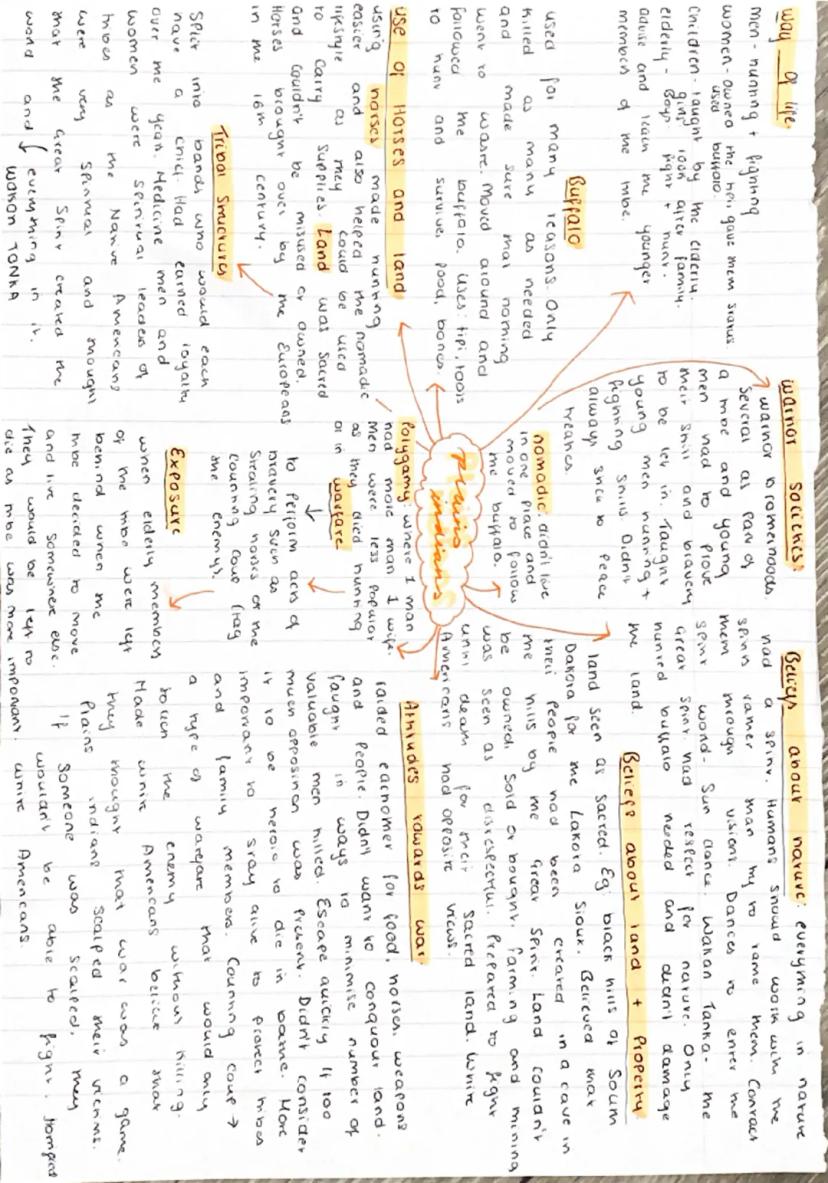 way of life.
men - hunting + fighting
women - owned the tipi gave them status
used buffalo.
Children - taught by the elderly.
girls look after family.
elderly - boys fight + hunt.
advise and teach the younger
members of the tribe.
Buffalo
used for many reasons. Only
killed as many as needed
and made sure that nothing
went to waste. Moved around and
followed the buffalo. Uses: tipi, tools
to hunt and survive, food, bones.
use of Horses and land
using horses made hunting
easier and also helped the nomadic
lifestyle as they could be used
to carry supplies. Land was sacred
and couldn't be misused or owned.
Horses brought over by the Europeans
in the 16th century.
Tribal Structures
Split into bands who would each
have a chief. Had earned loyalty
over the years. Medicine men and
women were spiritual leaders of
tribes as the Native Americans
were very spiritual and thought
that the Great Spirit created the
world and everything in it.
↓ WAKAN TONKA
plains
indians
warrior societies:
warrior brotherhoods
several as part of
a tribe and young
men had to prove
their skill and bravery
to be let in. Taught
young men hunting +
fighting skills. Didn't
always stick to peace
treaties.
nomadic: didn't live
in one place and
moved to follow
the buffalo.
Polygamy: where 1 man
had more than 1 wife.
Men were less popular
as they died hunting
or in warfare
↓
to perform acts of
bravery such as
stealing horses or the
counting coup (tag
the enemy).
Exposure
when elderly members
of the tribe were left
behind when the
tribe decided to move
and live somewhere else.
They would be left to
die as tribe was more important.
Beliefs about nature: everything in nature
had a spirit. Humans should work with the
spirits rather than try to tame them. Contact
them through visions. Dances to enter the
spirit world - Sun dance. Wakan Tanka: the
Great Spirit. Had respect for nature. Only
hunted buffalo needed and didn't damage
the land.
Beliefs about land + Property
land seen as sacred. Eg: black hills of South
Dakota for the Lakota Sioux. Believed that
their people had been created in a cave in
the hills by the Great Spirit. Land couldn't
be owned, sold or bought. Farming and mining
was seen as disrespectful. Prepared to fight
until death for their sacred land. White
Americans had opposite views.
Attitudes towards war
raided eachother for food, horses, weapons
and people. Didn't want to conquour land.
Faught in ways to minimise number of
valuable men killed. Escape quickly if too
much opposition was present. Didn't consider
it to be heroic to die in battle. More
important to stay alive to protect tribes
and family members. Counting coup →
a type of warfare that would only
touch the enemy without killing.
Made white Americans believe that
they thought that war was a game.
Plains indians scalped their victims.
If someone was scalped, they
wouldn't be able to fight.
white Americans.